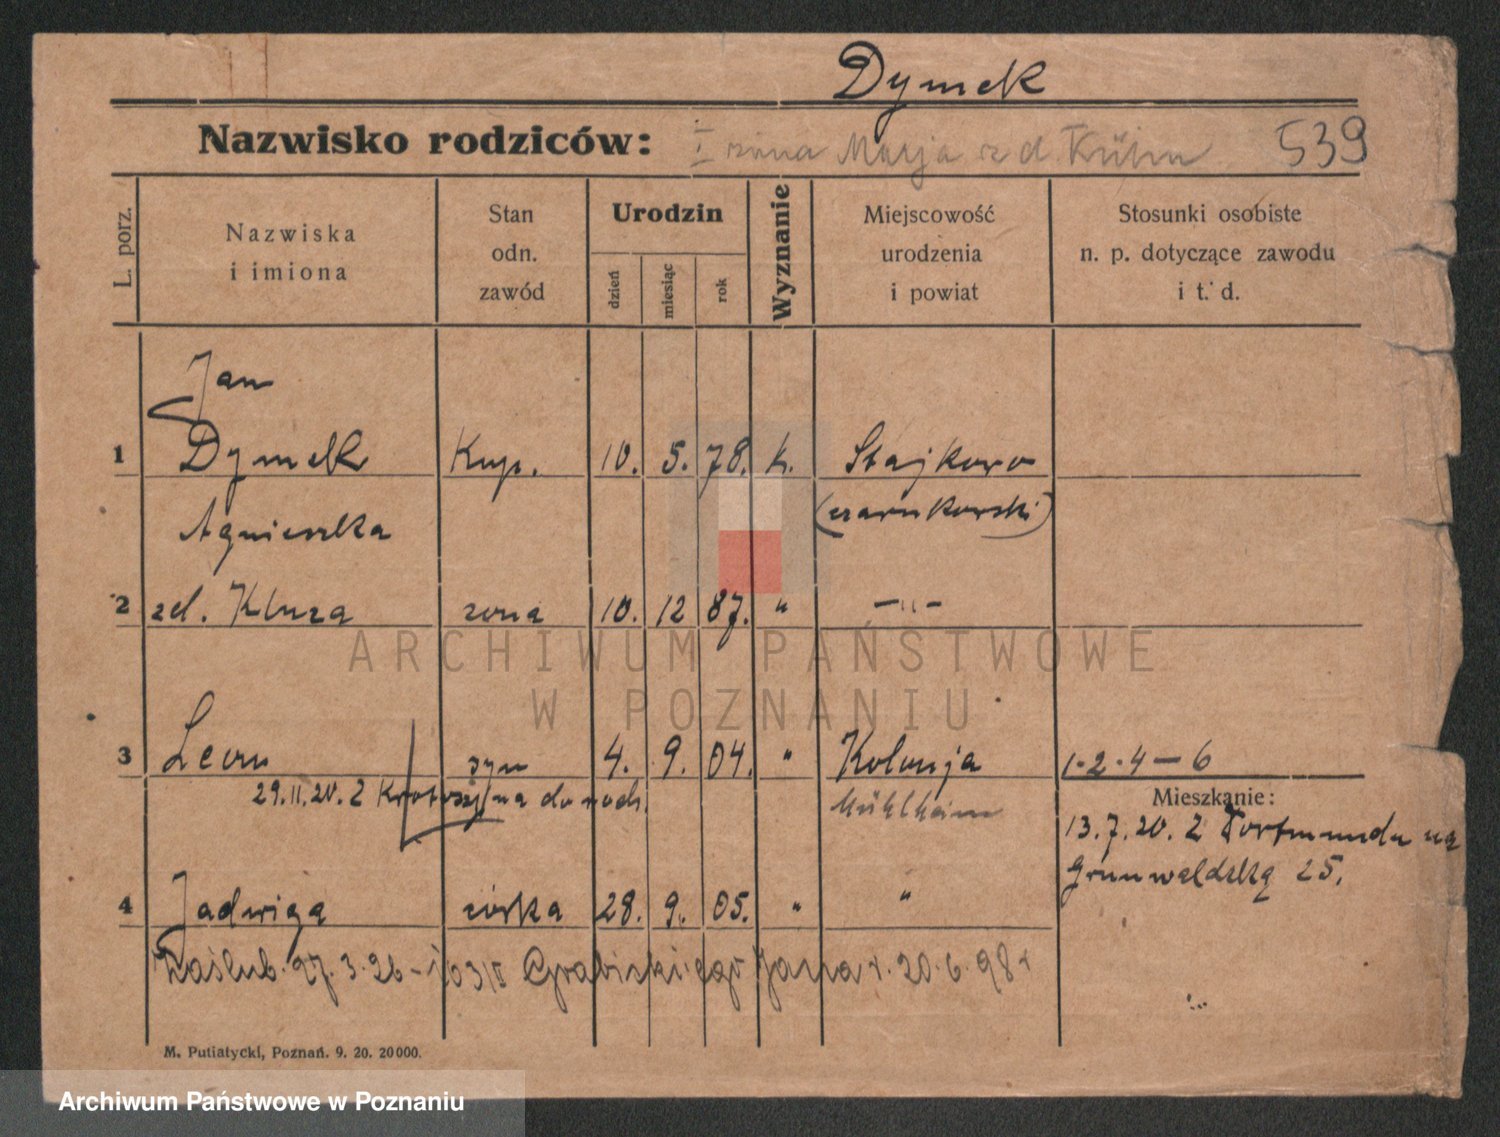 Dymek
Nazwisko rodziców: I żona Marja z d. Kühn 539
L. porz.
Nazwiska
i imiona
Stan
odn.
zawód
Urodzin
dzień
miesiąc
rok
Wyznanie
Miejscowość
urodzenia
i powiat
Stosunki osobiste
n. p. dotyczące zawodu
i t. d.
Jan
1 Dymek Kup. 10. 5. 78. k. Stajkowo
Agnieszka (czarnkowski)
2 zd. Kluza żona 10. 12 87. " —"—
3 Leon syn 4. 9. 04. " Kolonja 1-2-4-6
29.11.20. Z Krotoszyna do rodz. Mühlheim
Mieszkanie:
13.7.20. Z Dortmundu na
Grunwaldzką 25.
4 Jadwiga córka 28. 9. 05. " "
Zaślub. 27.3.26 - 103/II Grabicki 20.6.98
M. Putiatycki, Poznań. 9. 20. 20000.
ARCHIWUM PAŃSTWOWE
W POZNANIU
Archiwum Państwowe w Poznaniu